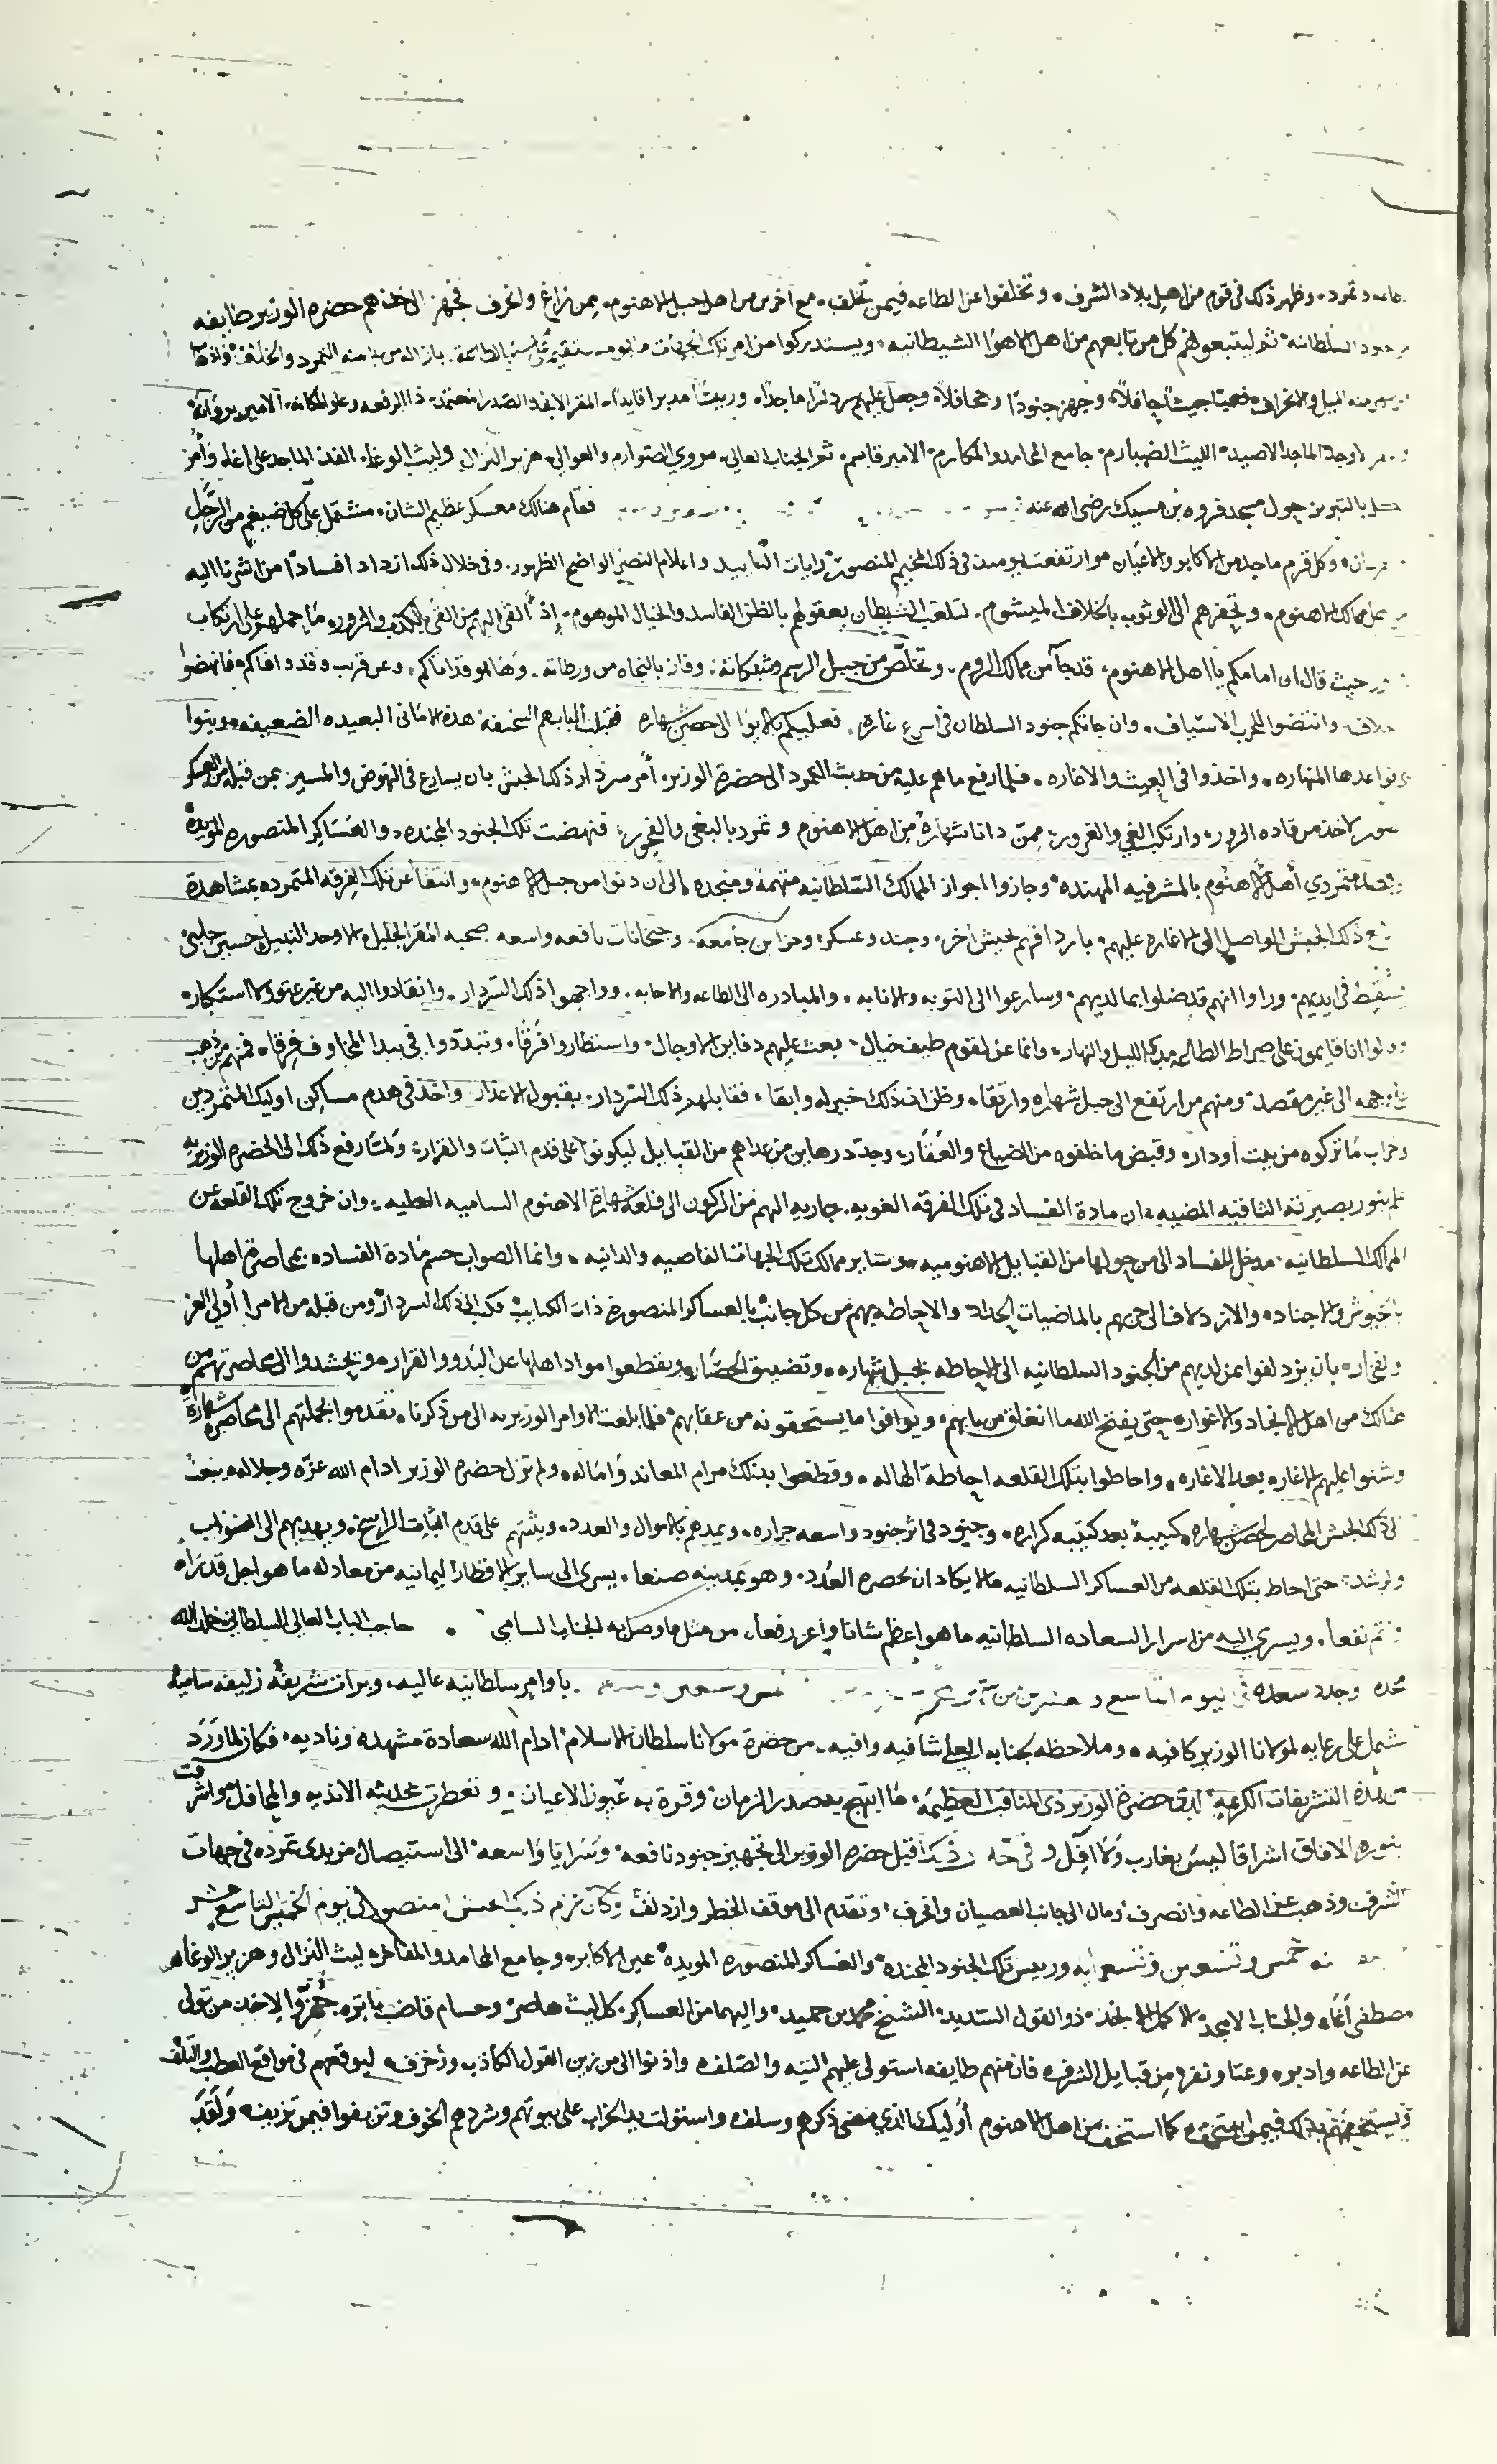 وتمرد وظهر ذلك فى قوم من اهل بلاد الشرف وتخلفوا عن الطاعه فيمن تخلف مع اخرين من اهل جبل الاهنوم ممن زاغ وانحرف فجهز لاخذهم حضرة الوزير طايفه
السلطانيه ثم ليتبعوا لهم كل من تابعهم من اهل الاهوا الشيطانيه ويستدركوا من امر تلك الجهات التمرد والخلف
منه الميل والانحراف جيشا حافلا وجهز جنودا وجحافلا وجعل عليهم سردارا ماجدا ورييسا مدبرا قايدا المقر الانجد الصدر المعتمد ذا الرفعه وعلو المكانه الامير
الاوحد الماجد الاصيد الليث الضبارم جامع المحامد والمكارم الامير قاسم ثم الجناب العالى مروي الصوارم والعوالى هزبر النزال وليث الوغا الماجد على اغا وامر
حول مسجد فروه بن مسيك رضى الله عنه فقام هنالك معسكر عظيم الشان مشتمل على كل ضيغم من
وكل قرم ماجد من الاكابر والاعيان وارتفعت يوميذ فى ذلك المخيم المنصور رايات التاييد واعلام النصر الواضح الظهور وفى خلال ذلك ازداد افسادا من اشرنا اليه
ممالك الاهنوم وتحفزهم الى الوثوب بالخلاف الميشوم لتلعب الشيطان بعقولهم بالظن الفاسد والخيال الموهوم إذ ألقى اليهم من ألقى بالكذب والزور ما حملهم على ارتكاب
حيث قال ان امامكم يا اهل الاهنوم قد جا من ممالك الروم وتخلص من جبل الرسم وفاز بالنجاه من ورطاته وها هو قد اتاكم وعن قريب وقد وافاكم فانهضوا
وانتضوا للحرب الاسياف وان جاتكم جنود السلطان فى اسرع غاره فعليكم الى حصن شهاره فقبلت البابهم السخيفه هذه الامانى البعيده الضعيفه وبنوا
قواعدها المنهاره واخذوا فى العيث والاغاره فلما رفع ما هم عليه من حديث التمرد الى حضرة الوزير أمر سردار ذلك الجيش بان يسارع فى النهوض والمسير بمن قبله من العسكر
لاخذ من قاده الزور وارتكب الغي والغرور ممن دانا شهارة من اهل الاهنوم وتمرد بالبغى والفجور فنهضت تلك الجنود المجنده والعساكر المنصوره المويدة
متمردي أهل الاهنوم بالمشرفيه المهنده وجازوا اجواز الممالك السلطانيه متهمة ومنجده الى ان دنوا من جبل الاهنوم عن تلك الفرقه المتمرده بمشاهدة
ذلك الجيش الواصل الى الاغاره عليهم بجيش اخر وجند وعسكر وخزاين جامعه وجبخانات نافعه واسعه صحبه المقر الجليل الاوحد النبيل حسين جلبى
فسقط فى يديهم وراوا انهم قد ضلوا بما لديهم وسارعوا الى التوبه والانابه والمبادره الى الطاعه والاجابه وواجهوا ذلك السردار وانقادوا اليه من غير عتو ولا استكبار
على صراط الطاعه الليل والنهار وانما عن لقوم طيف خيال بعث عليهم دفاين الاوجال واستطاروا فرقا وتبددوا فى بيدا المخاوف فرقا فمنهم من ذهب
وجهه الى غير مقصد ومنهم من ارتفع الى جبل شهاره وارتقا وظن ان ذلك خير له وابقا فقابلهم ذلك السردار بقبول الاعذار واخذ فى هدم مساكن اوليك المتمردين
وخراب ما تركوه من بيت أو دار وقبض ما خلفوه من الضياع والعقار وجدد رهاين من عداهم من القبايل ليكونوا على قدم الثبات والقرار ولما رفع ذلك الى الحضره الوزيريه
علم بنور بصيرته الثاقبه المضيه ان مادة الفساد فى تلك الفرقه الغويه من الركون الى قلعة شهارة الاهنوم الساميه العليه وان خروج تلك القلعه عن
الممالك السلطانيه مدخل للفساد الى من حولها من القبايل الاهنوميه وساير ممالك تلك الجهات القاصيه والدانيه وانما الصواب حسم مادة الفساد بمحاصرة اهلها
بالجيوش والاجناد والازدلاف الى حربهم بالماضيات الحداد والاحاطه بهم من كل جانب بالعساكر المنصورة ذات الكتايب فكتب الى ذلك السردار ومن قبله من الامرا أولي العز
والفخار بان يزدلفوا بمن لديهم من الجنود السلطانيه الى الاحاطه بجبل شهاره وتضييق الحصار ويقطعوا مواد اهلها عن البدو والقرار ويحشدوا الى محاصرتهم من
هنالك من اهل الانجاد والاغوار حتى يفتح الله ما انغلق من بابهم ويوافوا ما يستحقونه من عقابهم فلما بلغت الاوامر الوزيريه الى من ذكرنا تقدموا بجملتهم الى محاصرة شهارة
وشنوا عليهم الاغاره بعد الاغاره واحاطوا بتلك القلعه احاطة الهاله وقطعوا بذلك مرام المعاند وآماله ولم تزل حضرة الوزير ادام الله عزه وجلاله يبعث
الى ذلك الجيش المحاصر لحصن شهاره كتيبة بعد كتيبه كراره وجنود فى اثر جنود واسعه جراره ويمدهم بالاموال والعدد ويثبتهم على قدم الثبات الراسخ ويهديهم الى الصواب
والرشد حتى احاط بتلك القلعه من العساكر السلطانيه مالا يكاد ان يحصره العدد وهو بمدينه صنعا يسرى الى ساير الاقطار اليمانيه من معادله ما هو اجل قدرا
نفعا ويسري اليه من اسرار السعاده السلطانيه ما هو اعظم شانا واعز رفعا من مثل ما وصل به الجناب السامي حاجب الباب العالى السلطانى خلد الله
مجده وجدد سعده فى اليوم التاسع وعشرين من باوامر سلطانيه عاليه وبراات شريفه ساميه
تشمل على رعايه لمولانا الوزير كافيه وملاحظه لجنابه العلى شافيه وافيه من حضرة مولانا سلطان الاسلام ادام الله سعادة مشهده وناديه فكان لما ورد
من هذه التشريفات الكريمه لدى حضرة الوزير ذى المناقب العظيمه ما ابتهج به صدر الزمان وقرة به عيون الاعيان وتعطرت بحديثه الانديه والمحافل واشرقت
بنوره الافاق اشراقا ليس بغارب ولا آفل وفى حضرة الوزير الى تجهيز جنود نافعه وسرايا واسعه الى استيصال من بدى تمرده فى جهات
الشرف وذهب عن الطاعه وانصرف ومال الى جانب العصيان وانحرف وتقدم الى موقف الخطر وازدلف وكان المنصور فى يوم الخميس التاسع عشر
خمس وتسعين وتسعمايه ورييس تلك الجنود المجنده والعساكر المنصوره المويدة عين الاكابر وجامع المحامد والمفاخر ليث النزال وهزبر الوغا
مصطفى آغا والجناب الامجد الاكمل الانجد ذو القول السديد الشيخ محمد بن حميد واليهما من العساكر كل ليث هاصر وحسام قاضب باتر جهزوا لاخذ من تولى
عن الطاعه وادبر وعتا ونفر من قبايل الشرف فان منهم طايفه استولى عليهم التيه والصلف واذنوا الى من زين القول الكاذب وزخرف ليوقعهم فى مواقع العطب والتلف
ويستخفهم بذلك فيمن استخف كما استخف من اهل الاهنوم أوليك الذي مضى ذكرهم وسلف واستولت يد الخراب على بيوتهم وشردهم الخوف ولقد